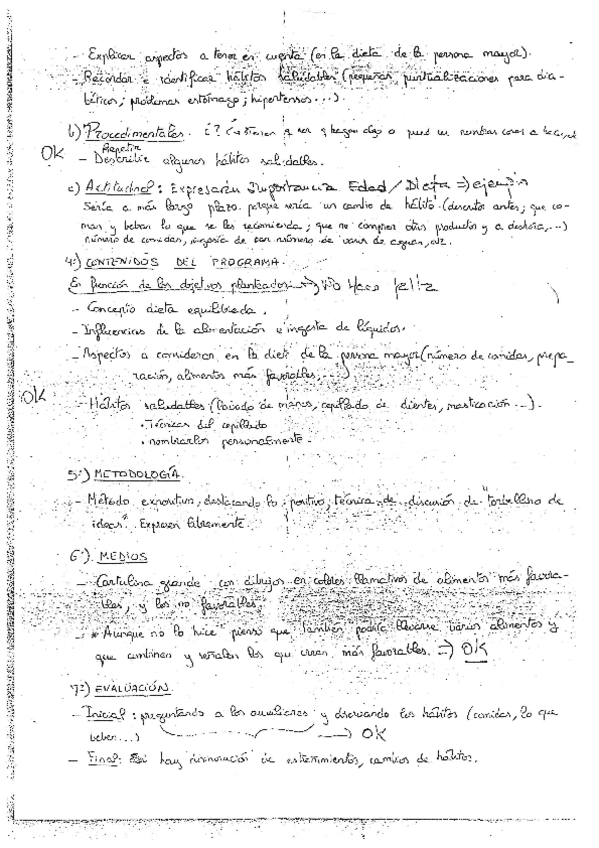 - Explicar aspectos a tener en cuenta (en la dieta de la persona mayor).
- Recordar e identificar hábitos saludables (pequeñas puntualizaciones para dia-
béticos; problemas estómago; hipertensos...)
b) Procedimentales. ¿? tienen q ser q hagan algo o
OK
Repetir
- Describir algunos hábitos saludables.
c) Actitudinal: Expresarán Importancia Edad/Dieta => ejemplo
Sería a más largo plazo porque sería un cambio de hábito (descritos antes; que co-
man y beban lo que se les recomienda; que no compren otros productos y a deshora,...)
número de comidas, ingesta de gran número de vasos de agua, etc.
4º) CONTENIDOS DEL PROGRAMA.
En función de los objetivos planteados => No Hace falta
- Concepto dieta equilibrada.
- Influencias de la alimentación e ingesta de líquidos.
- Aspectos a considerar en la dieta de la persona mayor (número de comidas, prepa-
ración, alimentos más favorables,...)
OK
- Hábitos saludables (lavado de manos, cepillado de dientes, masticación...).
• Técnicas del cepillado
• nombrarlos personalmente.
5º) METODOLOGÍA.
- Método expositivo, destacando lo positivo, técnica de discusión de "torbellino de
ideas". Expresen libremente.
6º) MEDIOS
- Cartulina grande con dibujos en colores llamativos de alimentos más favora-
bles, y los no favorables.
- * Aunque no lo hice pienso que también podría llevarse varios alimentos y
que combinen y señalen los que crean más favorables. => OK
7º) EVALUACIÓN.
- Inicial: preguntando a los auxiliares y observando los hábitos (comidas, lo que
beben...) OK
- Final: Si hay disminución de estreñimientos, cambios de hábitos.